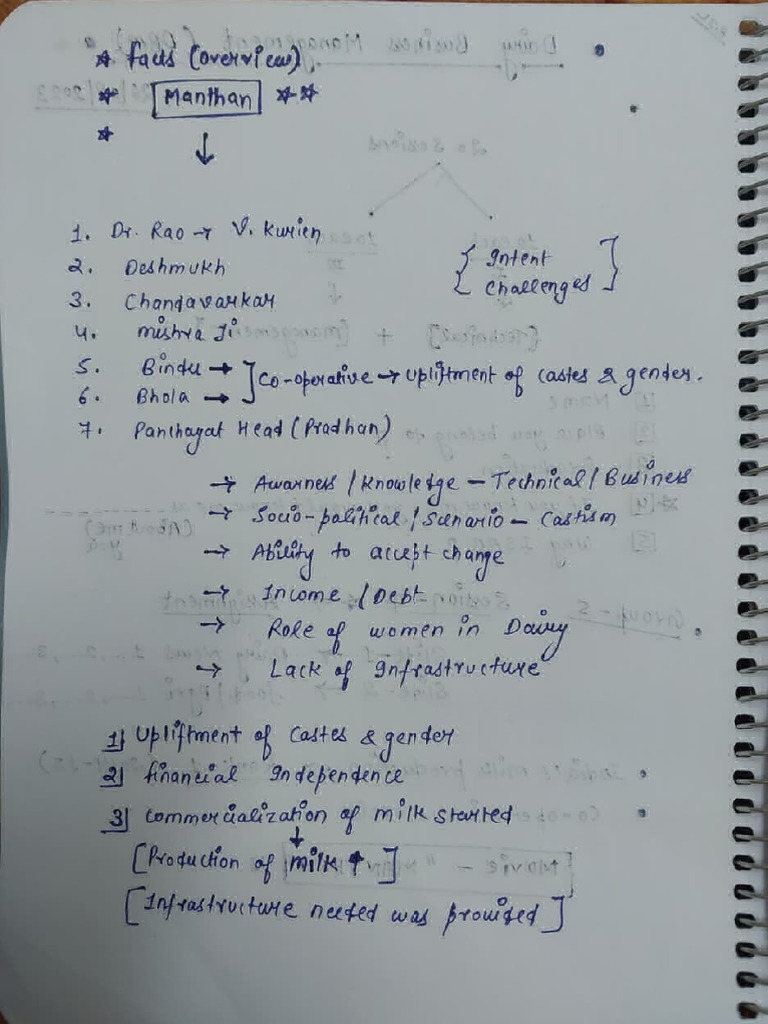 * facts (overview)
* Manthan **
*
↓
1. Dr. Rao → V. Kurien
2. Deshmukh
3. Chandavarkar
{ Intent
Challenges }
4. Mishra Ji
5. Bindu →
6. Bhola →
] Co-operative → Upliftment of castes & gender.
7. Panchayat Head (Pradhan)
→ Awarness / Knowledge – Technical / Business
→ Socio-political / Scenario – Castism
→ Ability to accept change
→ Income / Debt
→ Role of women in Dairy
→ Lack of Infrastructure
1) Upliftment of Castes & gender
2) financial Independence
3) commercialization of milk started
↓
[Production of milk ↑]
[Infrastructure needed was provided]